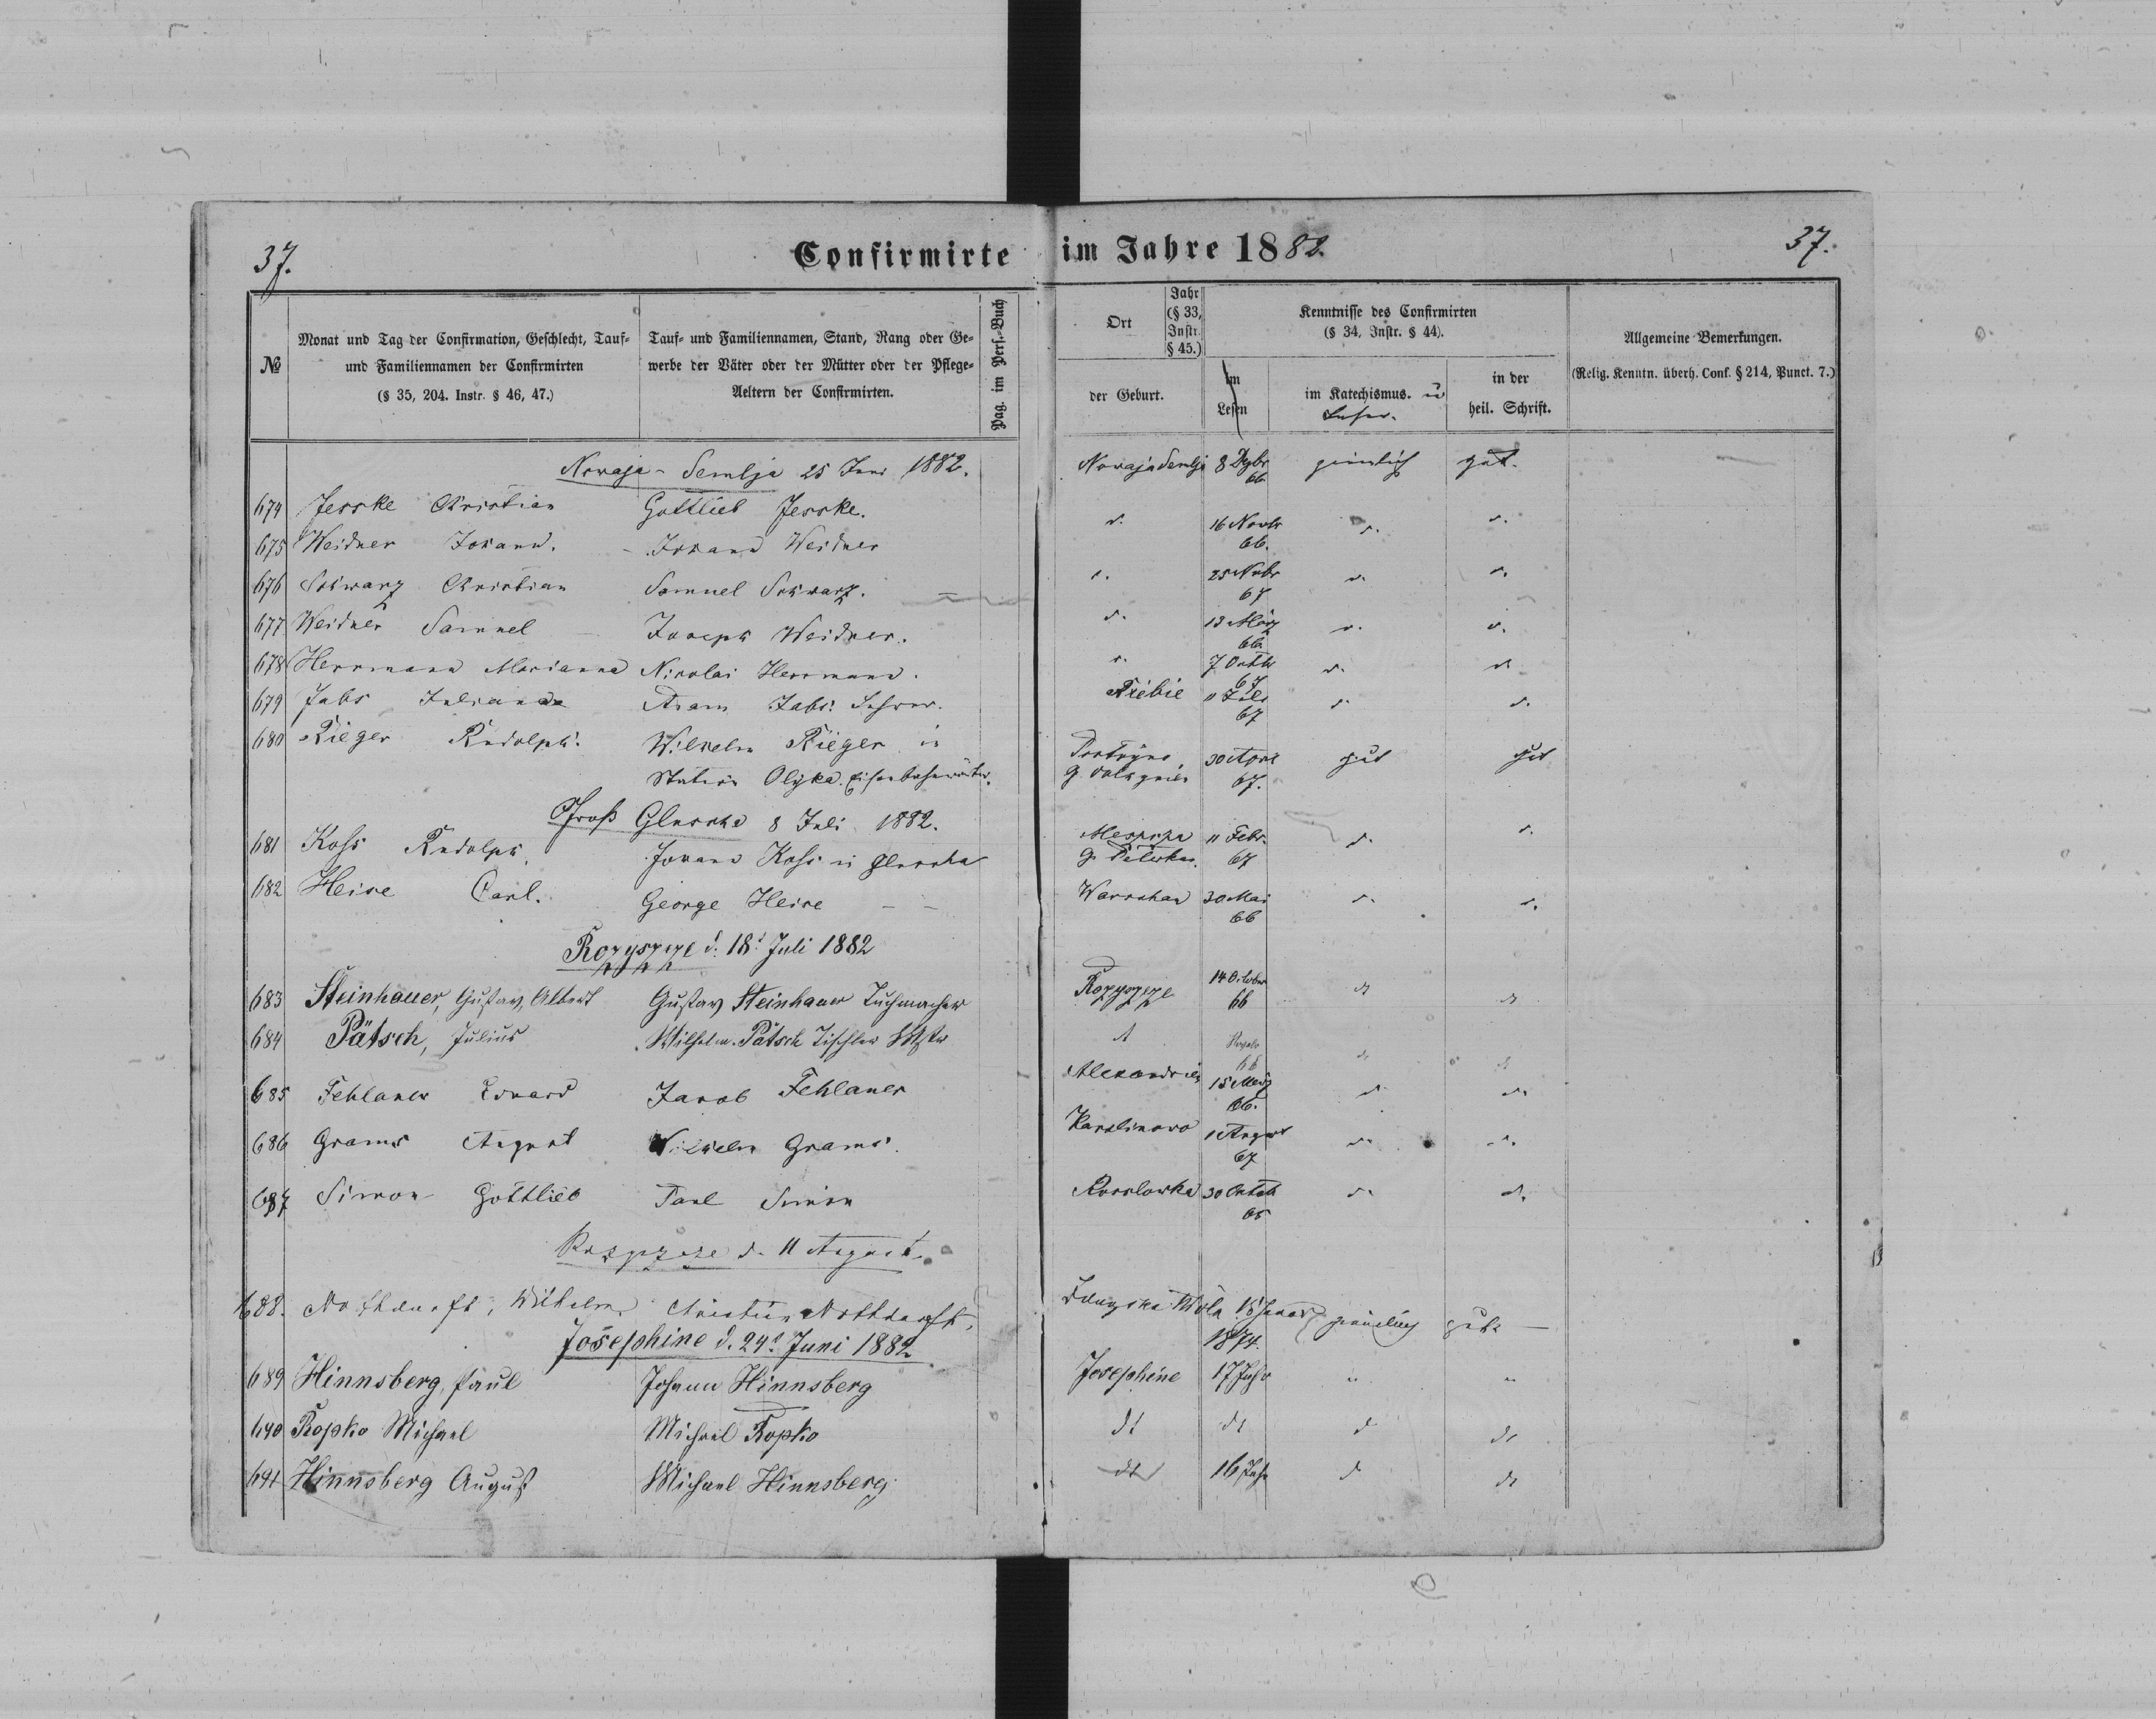 37.
Confirmirte im Jahre 1882.
37.
№
Monat und Tag der Confirmation, Geschlecht, Tauf-
und Familiennamen der Confirmirten
(§ 35, 204. Instr. § 46, 47.)
Tauf- und Familiennamen, Stand, Rang oder Ge-
werbe der Väter oder der Mütter oder der Pflege-
Aeltern der Confirmirten.
Pag. im Pers.-Buch
Ort
Jahr
(§ 33,
Instr.
§ 45.)
der Geburt.
Kenntnisse des Confirmirten
(§ 34, Instr. § 44).
im
Lesen
im Katechismus. u
Lesen.
in der
heil. Schrift.
Allgemeine Bemerkungen.
(Relig. Kenntn. überh. Conf. § 214, Punct. 7.)
Nowaja-Semlja 25 Juni 1882.
674 Jesske Christian Gottlieb Jesske. Nowaja Semlja 8 Dzbr ziemlich gut.
66
675 Weidner Johann. Johann Weidner d. 16 Novbr d. d.
66.
676 Schwarz Christian Samuel Schwarz. d. 25 d. d.
67
677 Weidner Samuel Joseph Weidner. d. 13 März d. d.
66
678 Herrmann Marianna Nicolai Herrmann. d. 7 Octb d. d.
67
679 Jabs Juliana Adam Jabs. 11 Juli d. d.
67
680 Rieger Rudolph. Wilhelm Rieger in 30 April gut gut
Station Olyka. Eisenbahnwärter. 67.
Gross Gluscha 8 Juli 1882.
681 Koss Rudolph. Johann Koss in Gluscha 11 Febr. d. d.
67
682 Heise Carl. George Heise Warschau 30 Mai d. d.
66
Rozyszcze d. 18t Juli 1882
683 Steinhauer, Gustav, Albert Gustav Steinhauer Tuchmacher Rozyszcze 14 October dt dt
66
684 Pätsch, Julius Wilhelm Pätsch Tischler dt dt dt
66
685 Fehlauer Eduard Jacob Fehlauer Alexandrien 15 März d. d.
66.
686 Grams August Wilhelm Grams. Karolinowo 1 August d. d.
67
687 Simon Gottlieb Paul Simon 30 Octob d. d.
65
Rozyszcze d. 11 August.
688. Nothdurft, Wilhelm Christian Nothdurft, Wola ziemlich gut
Josephine d. 24t Juni 1882
689 Hinnsberg, Paul Johann Hinnsberg Josephine 17 Jahr " "
690 Ropko Michael Michael Ropko dt dt d dt
691 Hinnsberg August Michael Hinnsberg dt 16 Jahr d dt